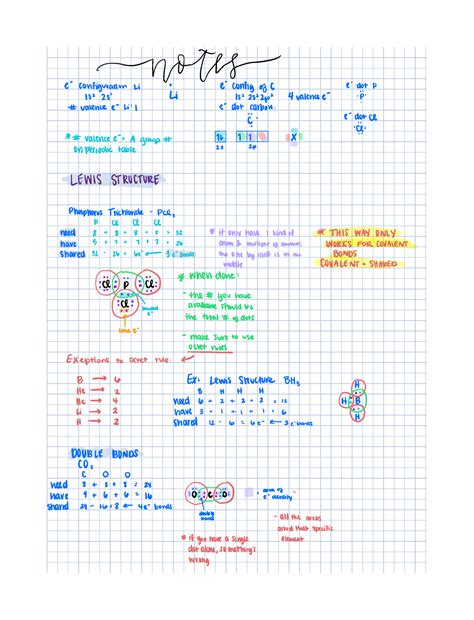 notes
e⁻ configuration Li
1s² 2s¹
# valence e⁻ Li: 1
Li
e⁻ config of C
1s² 2s² 2p² 4 valence e⁻
e⁻ dot carbon
C
e⁻ dot P
P
e⁻ dot Cl
Cl
# valence e⁻ = A group #
on periodic table
1L 1 1
2s 2p
X
LEWIS STRUCTURE
Phosphorus Trichloride - PCl₃
P Cl Cl Cl
need 8 + 8 + 8 + 8 = 32
have 5 + 7 + 7 + 7 = 26
shared 32 - 26 = 6e⁻ 3 e⁻ bonds
* if only have 1 kind of
atom & multiple of another,
the one by itself is in the
middle
* THIS WAY ONLY
WORKS FOR COVALENT
BONDS
COVALENT = SHARED
Cl P Cl
Cl
bonded
e⁻
lone e⁻
* when done:
- the # you have
available should be
the total # of dots
- make sure to use
octet rules
Exceptions to octet rule:
B → 6
He → 2
Be → 4
Li → 2
H → 2
Ex: Lewis Structure BH₃
B H H H
need 6 + 2 + 2 + 2 = 12
have 3 + 1 + 1 + 1 = 6
shared 12 - 6 = 6e⁻ 3 e⁻ bonds
H
H B
H
DOUBLE BONDS
CO₂
C O O
need 8 + 8 + 8 = 24
have 4 + 6 + 6 = 16
shared 24 - 16 = 8 4e⁻ bonds
O C O
double
bond
= area of
e⁻ density
- all the areas
around that specific
element
* if you have a single
dot alone, something's
wrong